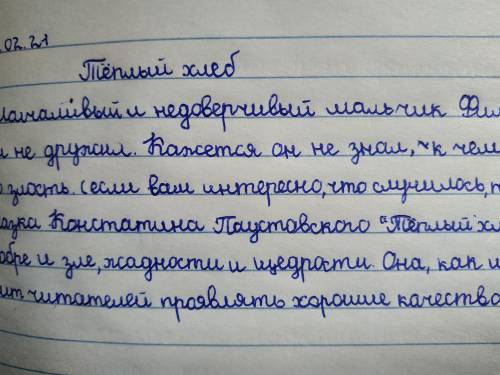 .02.21
Тёплый хлеб
молчаливый и недоверчивый мальчик Фил
и не дружил. Кажется он не знал, к чем
злость. (если вам интересно, что случилось, п
азка Констатина Паустовского "Тёплый хл
обре и зле, жадности и щедрости. Она, как и
ит читателей проявлять хорошие качества